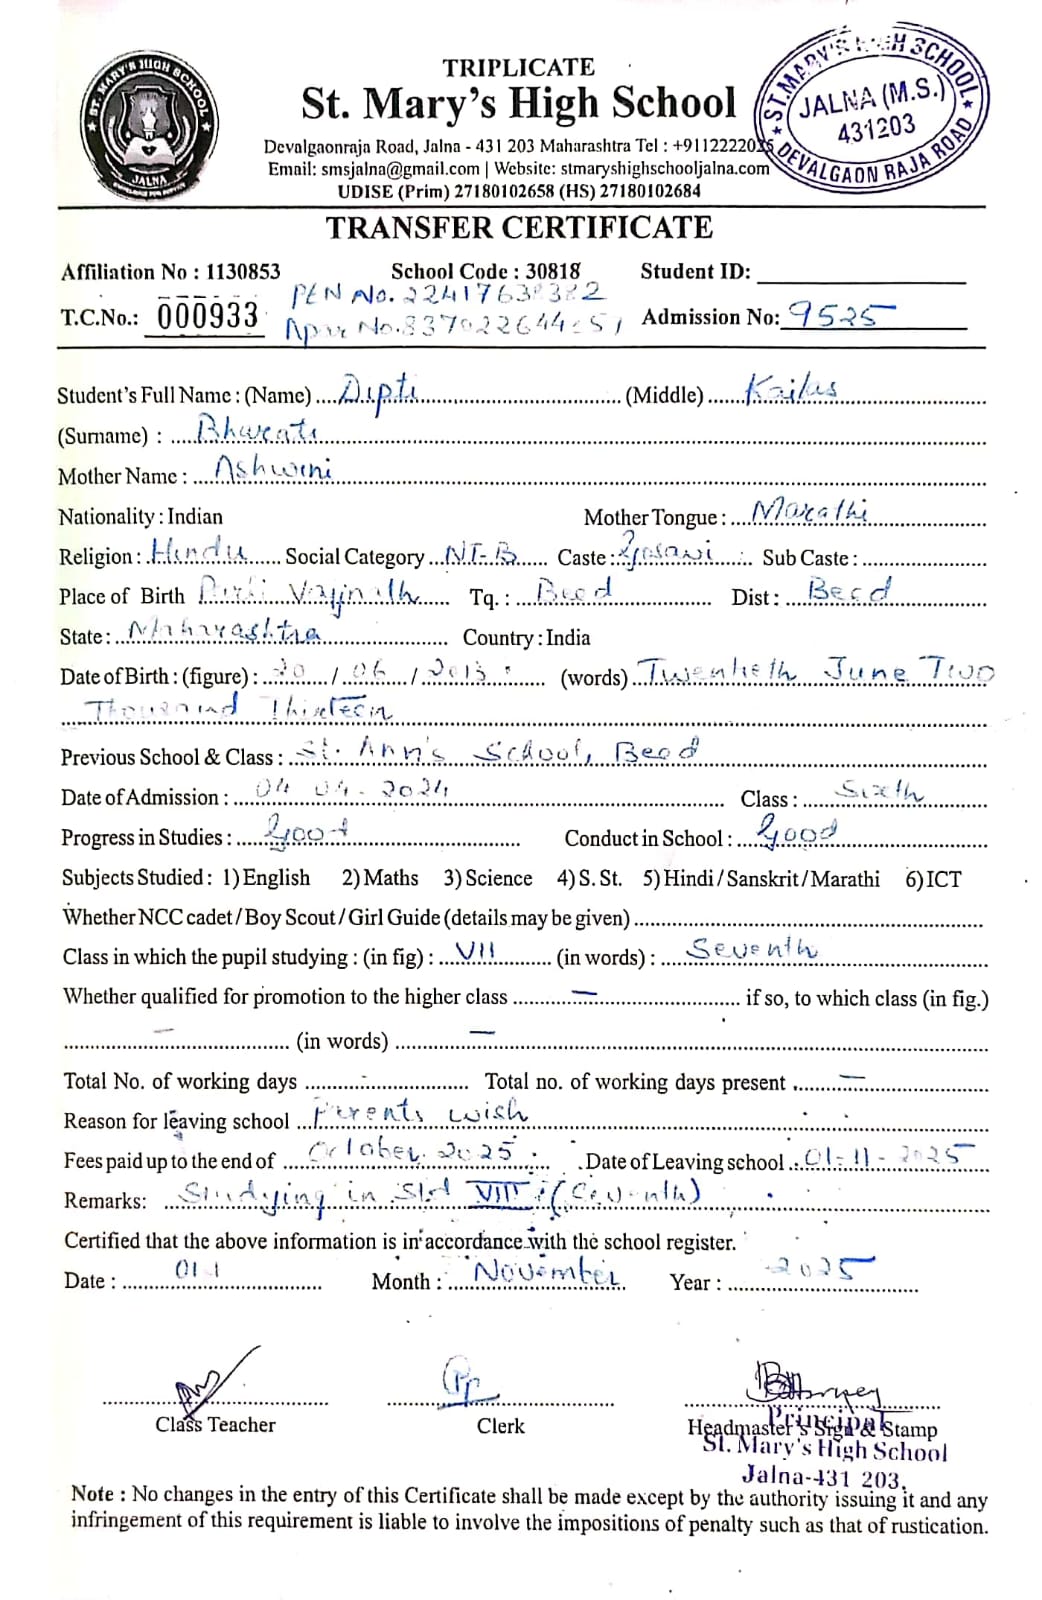 TRIPLICATE
St. Mary's High School
Devalgaonraja Road, Jalna - 431 203 Maharashtra Tel : +911222202
Email: smsjalna@gmail.com | Website: stmaryshighschooljalna.com
UDISE (Prim) 27180102658 (HS) 27180102684
ST. MARY'S HIGH SCHOOL
JALNA (M.S.)
431203
DEVALGAON RAJA ROAD
ST. MARY'S HIGH SCHOOL
JALNA
TRANSFER CERTIFICATE
Affiliation No : 1130853 School Code : 30818 Student ID:
PEN No.
T.C.No.: 000933 No. Admission No: 9525
Student's Full Name : (Name) Dipti (Middle) Kailas
(Surname) : Bharati
Mother Name : Ashwini
Nationality : Indian Mother Tongue : Marathi
Religion : Hindu Social Category NT-B Caste : Gosavi Sub Caste :
Place of Birth Parli Vaijinath Tq. : Beed Dist : Beed
State : Maharashtra Country : India
Date of Birth : (figure) : 20 / 06 / 2013 (words) Twentieth June Two
Thousand Thirteen
Previous School & Class : St. Ann's School, Beed
Date of Admission : 04 04 - 2024 Class : Sixth
Progress in Studies : Good Conduct in School : Good
Subjects Studied : 1) English 2) Maths 3) Science 4) S. St. 5) Hindi / Sanskrit / Marathi 6) ICT
Whether NCC cadet / Boy Scout / Girl Guide (details may be given)
Class in which the pupil studying : (in fig) : VII (in words) : Seventh
Whether qualified for promotion to the higher class — if so, to which class (in fig.)
— (in words) —
Total No. of working days - Total no. of working days present —
Reason for leaving school Parents wish
Fees paid up to the end of October. 2025 . Date of Leaving school : 01-11-2025
Remarks: Studying in Std VIII (Seventh)
Certified that the above information is in accordance with the school register.
Date : 01 Month : November Year : 2025
Class Teacher Clerk Headmaster's Sign & Stamp
Principal
St. Mary's High School
Jalna-431 203.
Note : No changes in the entry of this Certificate shall be made except by the authority issuing it and any
infringement of this requirement is liable to involve the impositions of penalty such as that of rustication.